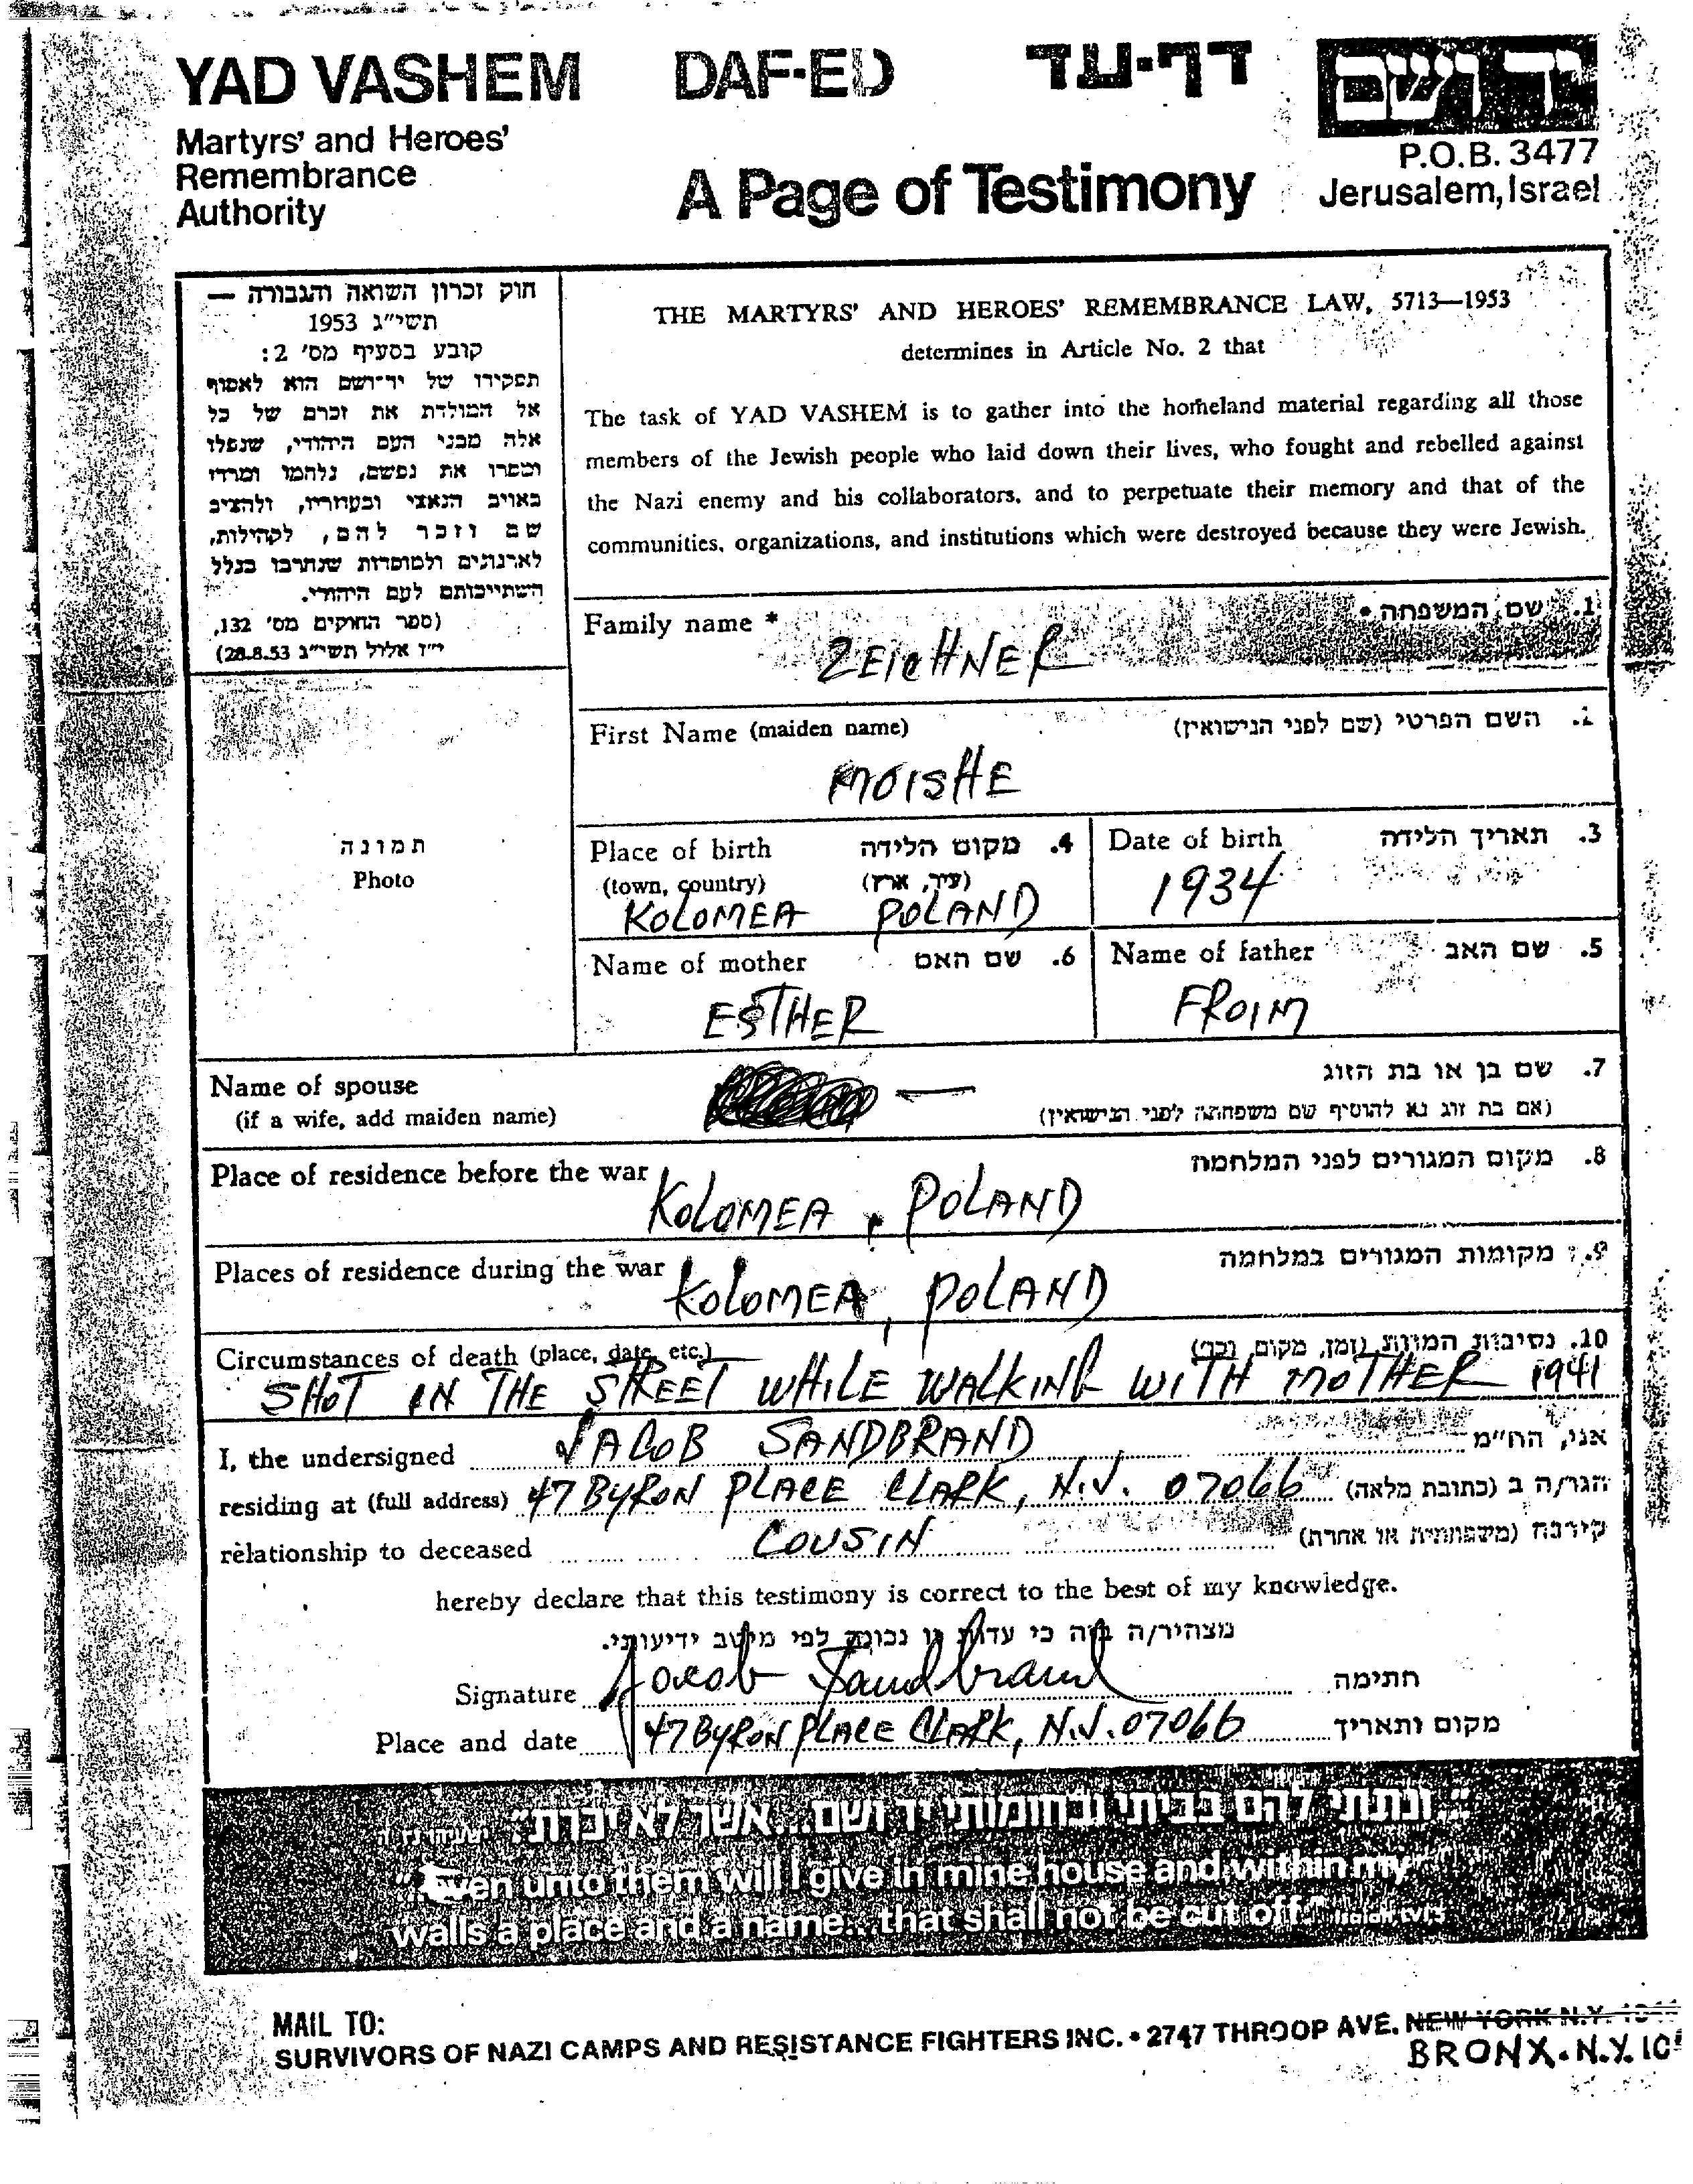 YAD VASHEM
Martyrs' and Heroes'
Remembrance
Authority
DAF-ED
דף-עד
A Page of Testimony
יד ושם
P.O.B. 3477
Jerusalem, Israel
חוק זכרון השואה והגבורה —
תשי"ג 1953
קובע בסעיף מס' 2:
תפקידו של יד־ושם הוא לאסוף
אל המולדת את זכרם של כל
אלה מבני העם היהודי, שנפלו
ומסרו את נפשם, נלחמו ומרדו
באויב הנאצי ובעוזריו, ולהציב
שם וזכר להם, לקהילות,
לארגונים ולמוסדות שנחרבו בגלל
השתייכותם לעם היהודי.
(ספר החוקים מס' 132,
י"ז אלול תשי"ג 28.8.53)
THE MARTYRS' AND HEROES' REMEMBRANCE LAW, 5713—1953
determines in Article No. 2 that
The task of YAD VASHEM is to gather into the homeland material regarding all those
members of the Jewish people who laid down their lives, who fought and rebelled against
the Nazi enemy and his collaborators, and to perpetuate their memory and that of the
communities, organizations, and institutions which were destroyed because they were Jewish.
Family name * 1. שם המשפחה *
ZEICHNER
First Name (maiden name) 2. השם הפרטי (שם לפני הנישואין)
MOISHE
תמונה
Photo
Place of birth 4. מקום הלידה
(town, country) (עיר, ארץ)
KOLOMEA POLAND
Date of birth 3. תאריך הלידה
1934
Name of mother 6. שם האם
ESTHER
Name of father 5. שם האב
FROIM
Name of spouse — 7. שם בן או בת הזוג
(if a wife, add maiden name) (אם בת זוג נא להוסיף שם משפחתה לפני הנישואין)
Place of residence before the war 8. מקום המגורים לפני המלחמה
KOLOMEA, POLAND
Places of residence during the war 9. מקומות המגורים במלחמה
KOLOMEA, POLAND
Circumstances of death (place, date, etc.) 10. נסיבות המוות (זמן, מקום, וכו')
SHOT IN THE STREET WHILE WALKING WITH MOTHER 1941
I, the undersigned JACOB SANDBRAND אני, הח"מ
residing at (full address) 47 BYRON PLACE CLARK, N.J. 07066 הגר/ה ב (כתובת מלאה)
relationship to deceased COUSIN קירבה (משפחתית או אחרת)
hereby declare that this testimony is correct to the best of my knowledge.
מצהיר/ה בזה כי עדות זו נכונה לפי מיטב ידיעותי.
Signature Jacob Sandbrand חתימה
Place and date 47 BYRON PLACE CLARK, N.J. 07066 מקום ותאריך
"ונתתי להם בביתי ובחומותי יד ושם...אשר לא יכרת" ישעיהו נו ה
"...Even unto them will I give in mine house and within my
walls a place and a name...that shall not be cut off." Isaiah, lvi 5
MAIL TO:
SURVIVORS OF NAZI CAMPS AND RESISTANCE FIGHTERS INC. • 2747 THROOP AVE. NEW YORK N.Y.
BRONX. N.Y.